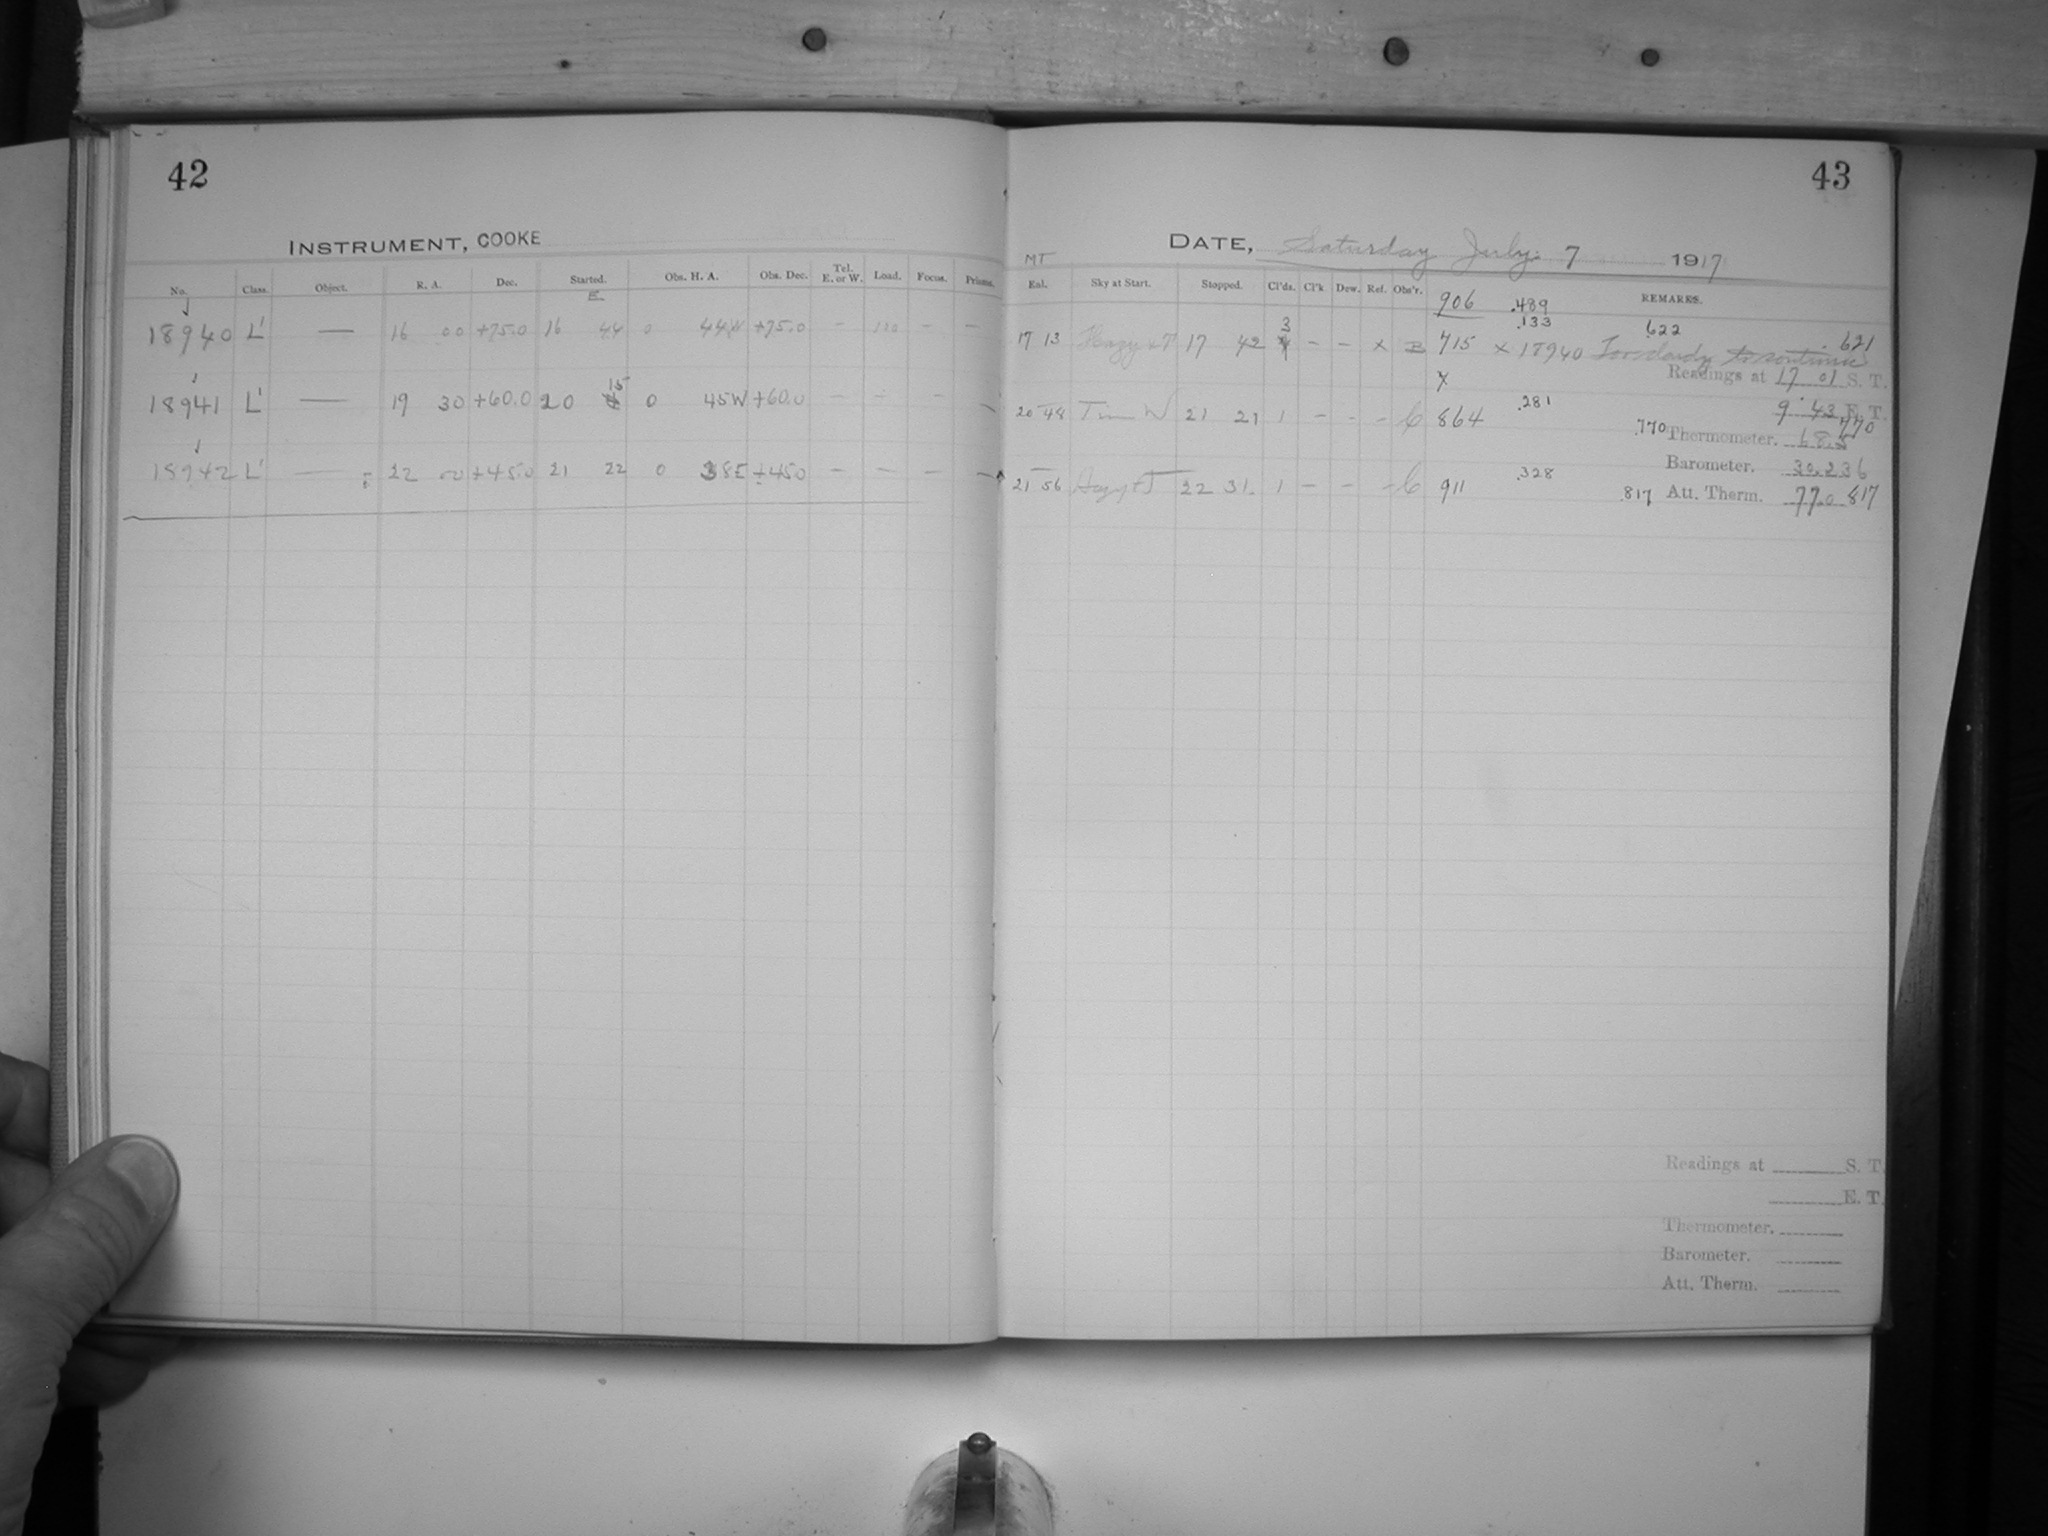 42
INSTRUMENT, COOKE
No. Class. Object. R. A. Dec. Started. Obs. H. A. Obs. Dec. Tel. E. or W. Load. Focus. Prisms.
E
18940 L' — 16 00 +75.0 16 44 0 44W +75.0 – 110 – –
15
18941 L' — 19 30 +60.0 20 0 45W +60.0 – – – –
18942 L' — 22 00 +45.0 21 22 0 38E +45.0 – – – –
43
DATE, Saturday July 7 1917
MT
Exl. Sky at Start. Stopped. Cl'ds. Cl'k Dew. Ref. Obs'r. REMARKS.
906 .489
3 .133 .622 621
17 13 Hazy 17 42 – – x B 715 x 18940 Too cloudy to continue
Readings at 17 01 S. T.
x
20 48 21 21 1 – – – C 864 .281 9 43 E. T.
.770 Thermometer. 68.5 770
Barometer. 30.236
21 56 Hazy 22 31. 1 – – – C 911 .328 .817 Att. Therm. 77.0 817
Readings at S. T.
E. T.
Thermometer.
Barometer.
Att. Therm.